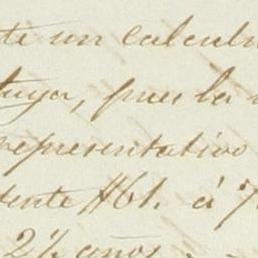 te un calculo
tuya, pues la
representativo
dente #61. á 7
2½ años